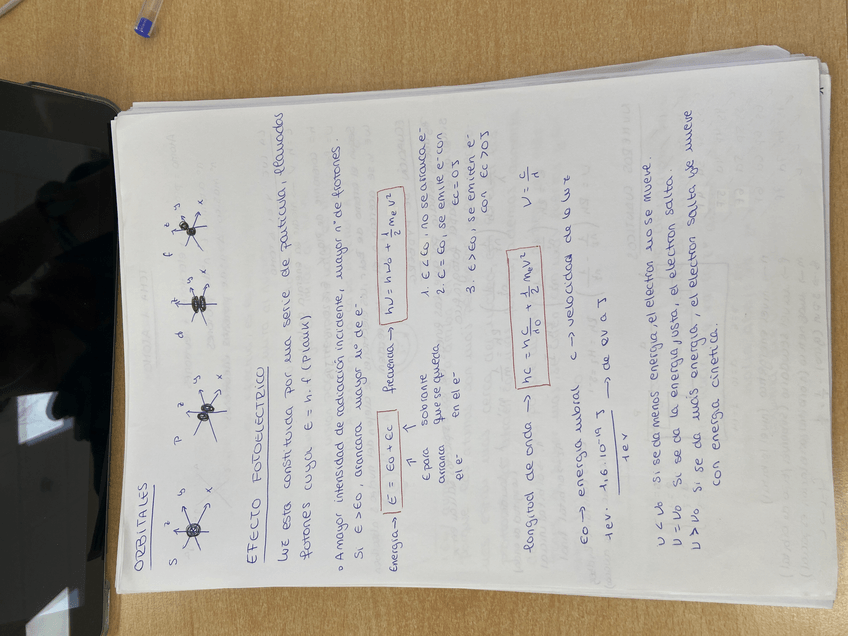 ORBITALES
S P d f
z y x z y x z x z y x
EFECTO FOTOELECTRICO
luz esta constituida por una serie de particula, llamadas
fotones cuya E = h.f (Plank)
• A mayor intensidad de radiación incidente, mayor nº de frotones.
Si E > E0, arancara mayor nº de e-.
Energia → E = E0 + Ec frecuencia → hν = hν0 + 1/2 me v²
E para arranca el e-
sobrante que se queda en el e-
1. E < E0, no se arranca e-
2. E = E0, se emite e- con Ec = 0J
3. E > E0, se emiten e- con Ec > 0J
longitud de onda → hc = h c/λ0 + 1/2 me v² ν = c/λ
E0 → energia umbral c → velocidad de la luz
1ev · 1,6·10⁻¹⁹ J / 1ev → de ev a J
ν < ν0 si se da menos energia, el electron no se mueve.
ν = ν0 si se da la energia justa, el electron salta.
ν > ν0 si se da mais energia, el electron salta y se mueve
con energia cinetica.